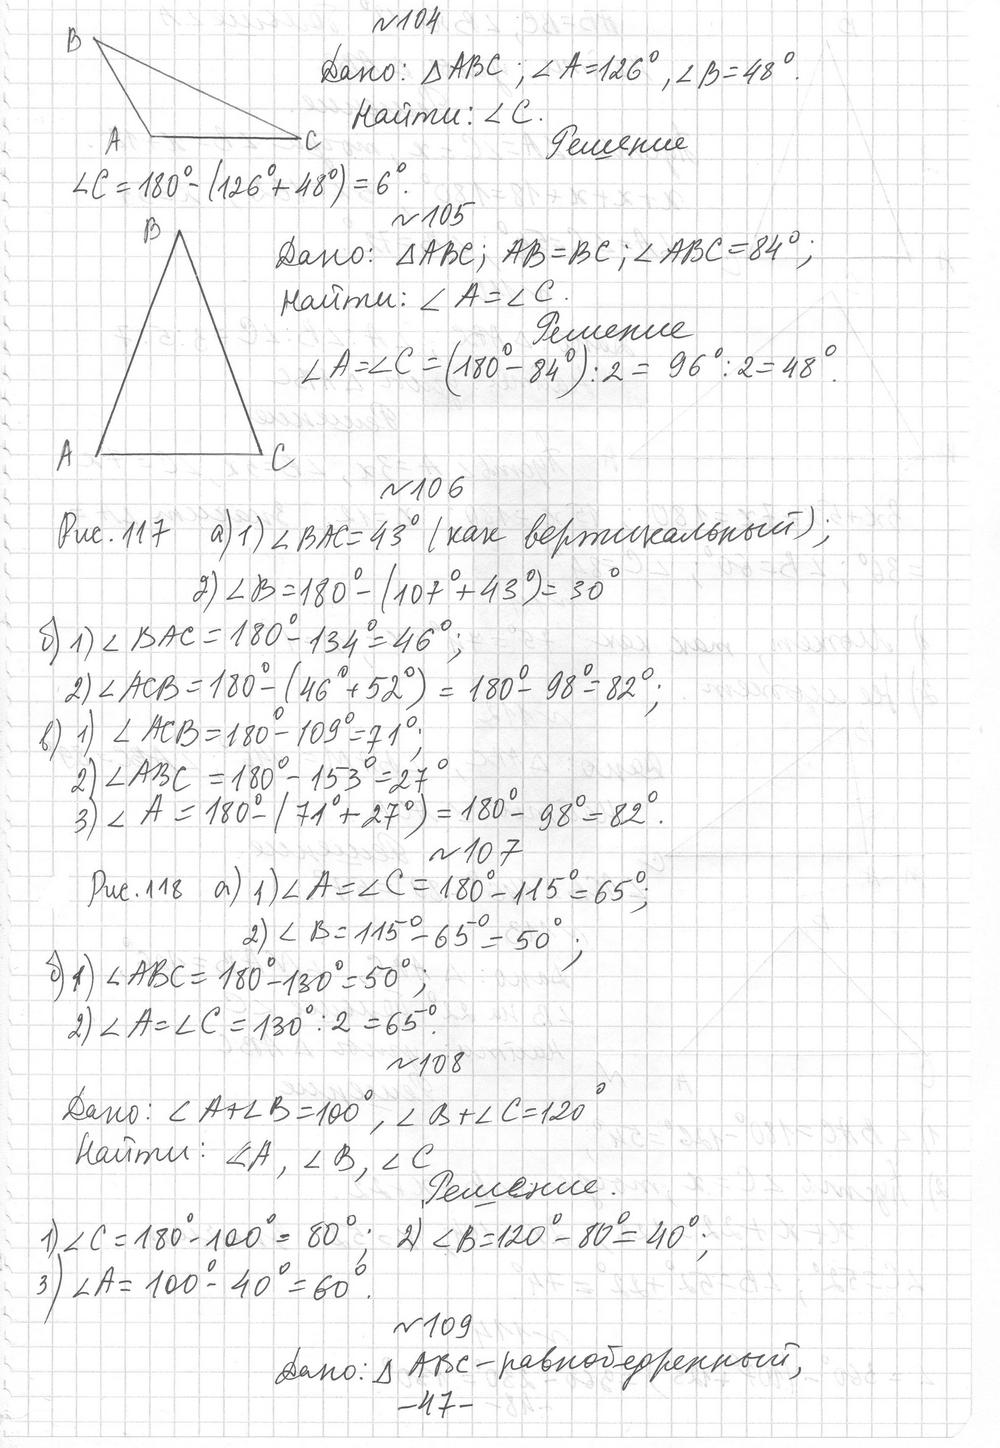 №104
B
Дано: △ABC; ∠A=126°, ∠B=48°.
Найти: ∠C.
A C
Решение
∠C=180°-(126°+48°)=6°.
№105
B
Дано: △ABC; AB=BC; ∠ABC=84°;
Найти: ∠A=∠C.
Решение
∠A=∠C=(180°-84°):2= 96°:2=48°.
A C
№106
Рис.117 а)1)∠BAC=43°(как вертикальный);
2)∠B=180°-(107°+43°)=30°
б)1)∠BAC=180°-134°=46°;
2)∠ACB=180°-(46°+52°)=180°-98°=82°;
в)1)∠ACB=180°-109°=71°;
2)∠ABC=180°-153°=27°
3)∠A=180°-(71°+27°)=180°-98°=82°.
№107
Рис.118 а)1)∠A=∠C=180°-115°=65°;
2)∠B=115°-65°=50°;
б)1)∠ABC=180°-130°=50°;
2)∠A=∠C=130°:2=65°.
№108
Дано: ∠A+∠B=100°, ∠B+∠C=120°
Найти: ∠A, ∠B, ∠C
Решение.
1)∠C=180°-100°=80°; 2)∠B=120°-80°=40°;
3)∠A=100°-40°=60°.
№109
Дано: △ABC-равнобедренный,
-47-